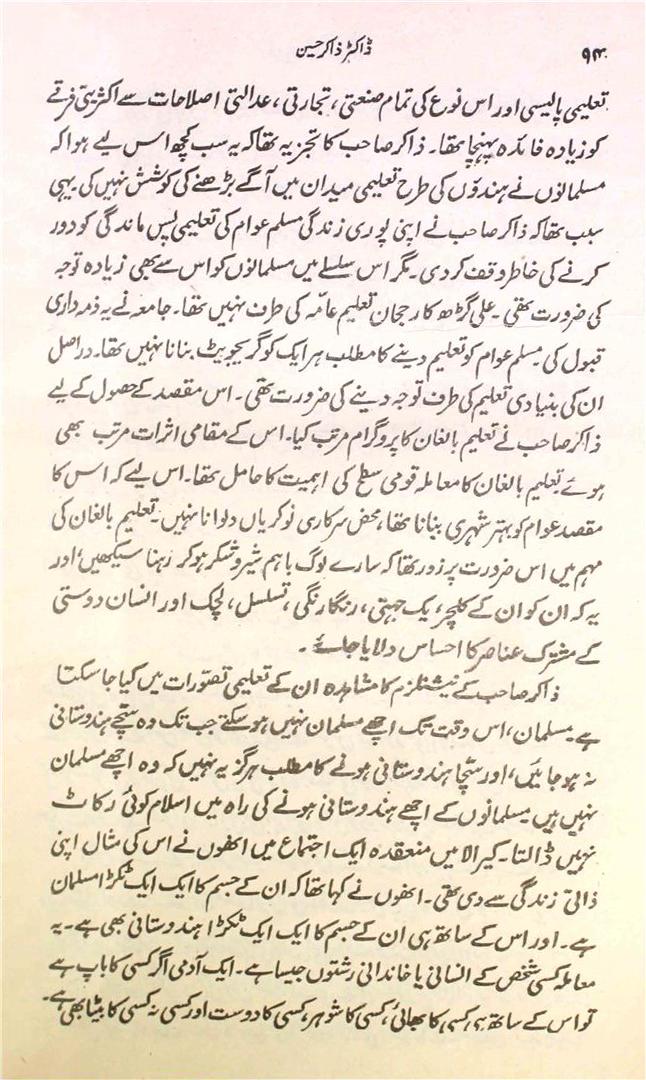 ۹۴
ڈاکٹر ذاکر حسین
تعلیمی پالیسی اور اس نوع کی تمام صنعتی، تجارتی، عدالتی اصلاحات سے اکثریتی فرقے
کو زیادہ فائدہ پہنچا تھا۔ ذاکر صاحب کا تجزیہ تھا کہ یہ سب کچھ اس لیے ہوا کہ
مسلمانوں نے ہندوؤں کی طرح تعلیمی میدان میں آگے بڑھنے کی کوشش نہیں کی یہی
سبب تھا کہ ذاکر صاحب نے اپنی پوری زندگی مسلم عوام کی تعلیمی پس ماندگی کو دور
کرنے کی خاطر وقف کر دی۔ مگر اس سلسلے میں مسلمانوں کو اس سے بھی زیادہ توجہ
کی ضرورت تھی۔ علی گڑھ کا رجحان تعلیم عامّہ کی طرف نہیں تھا۔ جامعہ نے یہ ذمہ داری
قبول کی۔ مسلم عوام کو تعلیم دینے کا مطلب ہر ایک کو گریجویٹ بنانا نہیں تھا۔ دراصل
ان کی بنیادی تعلیم کی طرف توجہ دینے کی ضرورت تھی۔ اس مقصد کے حصول کے لیے
ذاکر صاحب نے تعلیم بالغان کا پروگرام مرتب کیا۔ اس کے مقامی اثرات مرتب بھی
ہوئے۔ تعلیم بالغان کا معاملہ قومی سطح کی اہمیت کا حامل تھا۔ اس لیے کہ اس کا
مقصد عوام کو بہتر شہری بنانا تھا، محض سرکاری نوکریاں دلوانا نہیں۔ تعلیم بالغان کی
مہم میں اس ضرورت پر زور تھا کہ سارے لوگ باہم شیر و شکر ہو کر رہنا سیکھیں، اور
یہ کہ ان کو ان کے کلچر، یک جہتی، رنگا رنگی، تسلسل، لچک اور انسان دوستی
کے مشترک عناصر کا احساس دلایا جائے۔
ذاکر صاحب کے نیشنلزم کا مشاہدہ ان کے تعلیمی تصوّرات میں کیا جا سکتا
ہے۔ مسلمان، اس وقت تک اچھے مسلمان نہیں ہو سکتے جب تک وہ سچّے ہندوستانی
نہ ہو جائیں، اور سچّا ہندوستانی ہونے کا مطلب ہرگز یہ نہیں کہ وہ اچھے مسلمان
نہیں ہیں۔ مسلمانوں کے اچھے ہندوستانی ہونے کی راہ میں اسلام کوئی رکاٹ
نہیں ڈالتا۔ کیرالا میں منعقدہ ایک اجتماع میں انھوں نے اس کی مثال اپنی
ذاتی زندگی سے دی تھی۔ انھوں نے کہا تھا کہ ان کے جسم کا ایک ایک ٹکڑا مسلمان
ہے۔ اور اس کے ساتھ ہی ان کے جسم کا ایک ایک ٹکڑا ہندوستانی بھی ہے۔ یہ
معاملہ کسی شخص کے انسانی یا خاندانی رشتوں جیسا ہے۔ ایک آدمی اگر کسی کا باپ ہے
تو اس کے ساتھ ہی کسی کا بھائی، کسی کا شوہر، کسی کا دوست اور کسی نہ کسی کا بیٹا بھی ہے۔